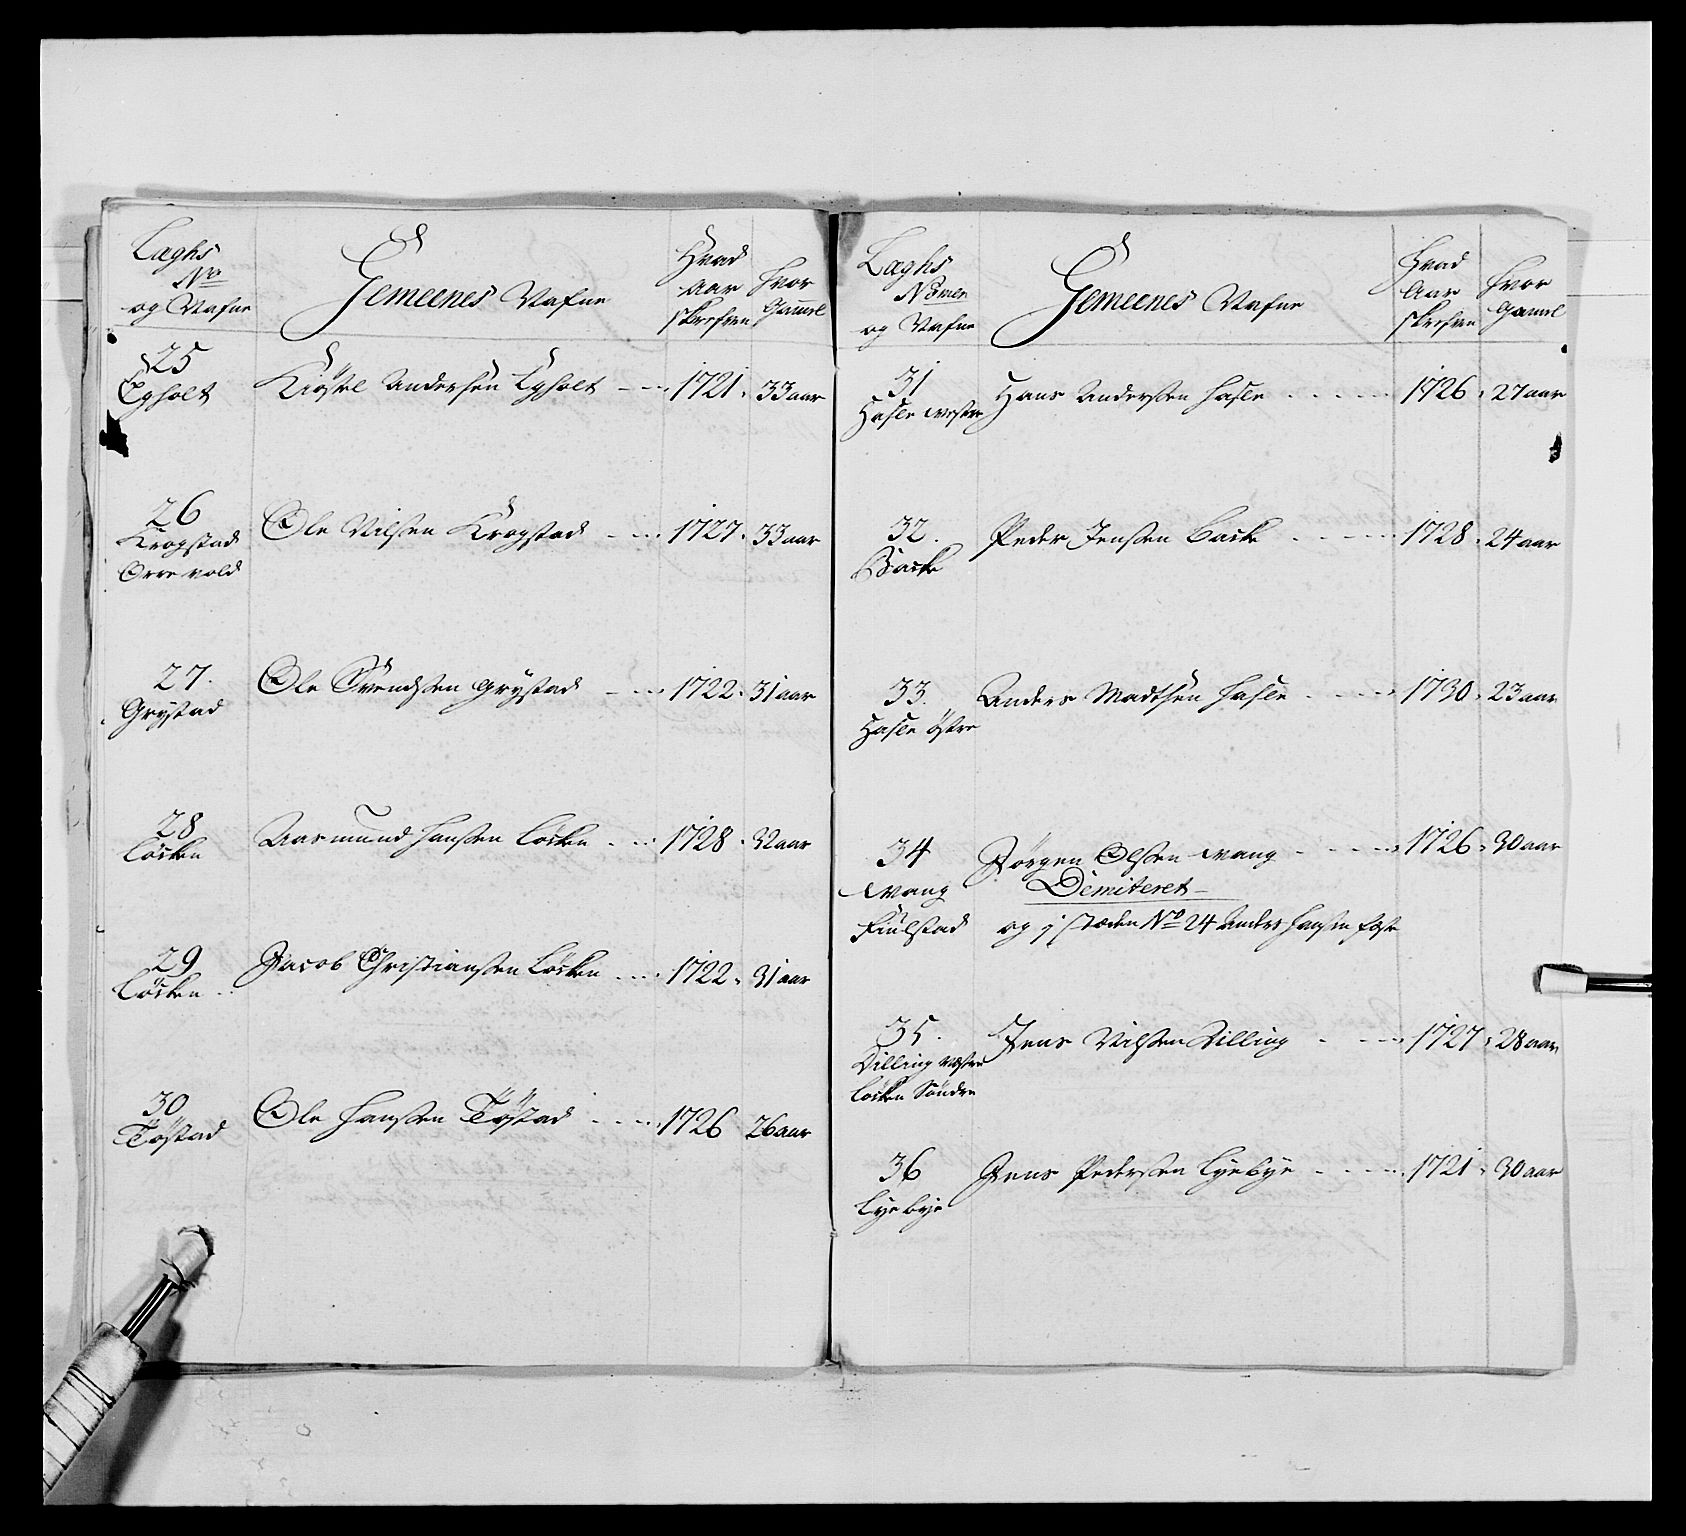 Læghs
No
og Nafne
Gemeenes Nafne
Hvad
aar
skrefven
Hvor
Gamel
25
Egholt
Kiøstel Andersen Egholt 1721. 33 aar
26
Krogstad
Orrevold
Ole Nilsen Krogstad 1727. 33 aar
27.
Grystad
Ole Svendsen Grystad 1722. 31 aar
28
Løcken
Aasmund Hansen Løcken 1728. 32 aar
29
Løcken
Jacob Christiansen Løcken 1722. 31 aar
30
Tøstad
Ole Hansen Tøstad 1726 26 aar
Læghs
Nomer
og Nafne
Gemeenes Nafne
Hvad
Aar
skrefven
Hvor
Gamel
31
Hasle westre
Hans Andersen Hasle 1726. 27 aar
32.
Backe
Peder Jensen Backe 1728. 24 aar
33.
Hasle østre
Anders Madtsen Hasle 1730. 23 aar
34
Wang
Fiulstad
Jørgen Olsen Wang 1726. 30 aar
Demiteret
og j stæden No 24 Anders Hansen
35.
Dilling Westre
Løcken Søndre
Jens Nilsen Dilling 1727. 28 aar
36
Lyebye
Jens Pedersen Lyebye 1721. 30 aar